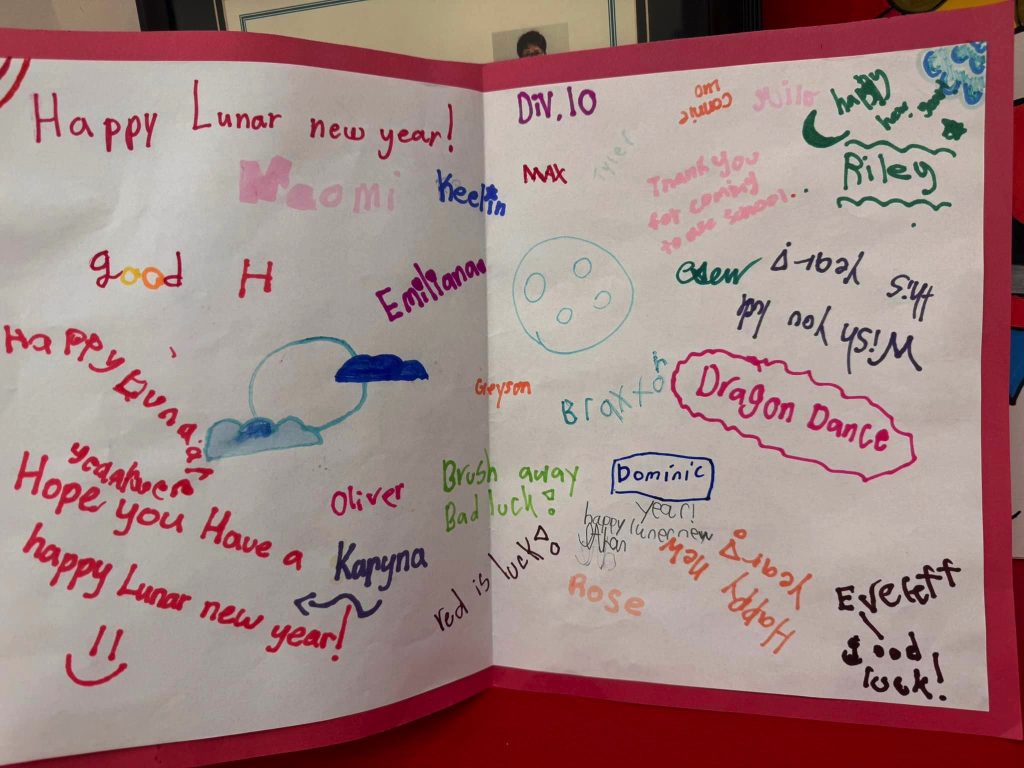 Happy Lunar new year!
Naomi
Keelin
good H
Emiliana
Happy Luna
Hope you Have a
happy Lunar new
year!
Oliver
Kapyna
Brush away
Bad luck!
red is luck!
Div.10
MAX
Tyler
Connie
Milo
happy
Riley
Thank you
for coming
to our school..
Wish you
this year
Greyson
Braxton
Dragon Dance
Dominic
happy luner new
year!
Rose
Happy new
year
Everett
good
luck!